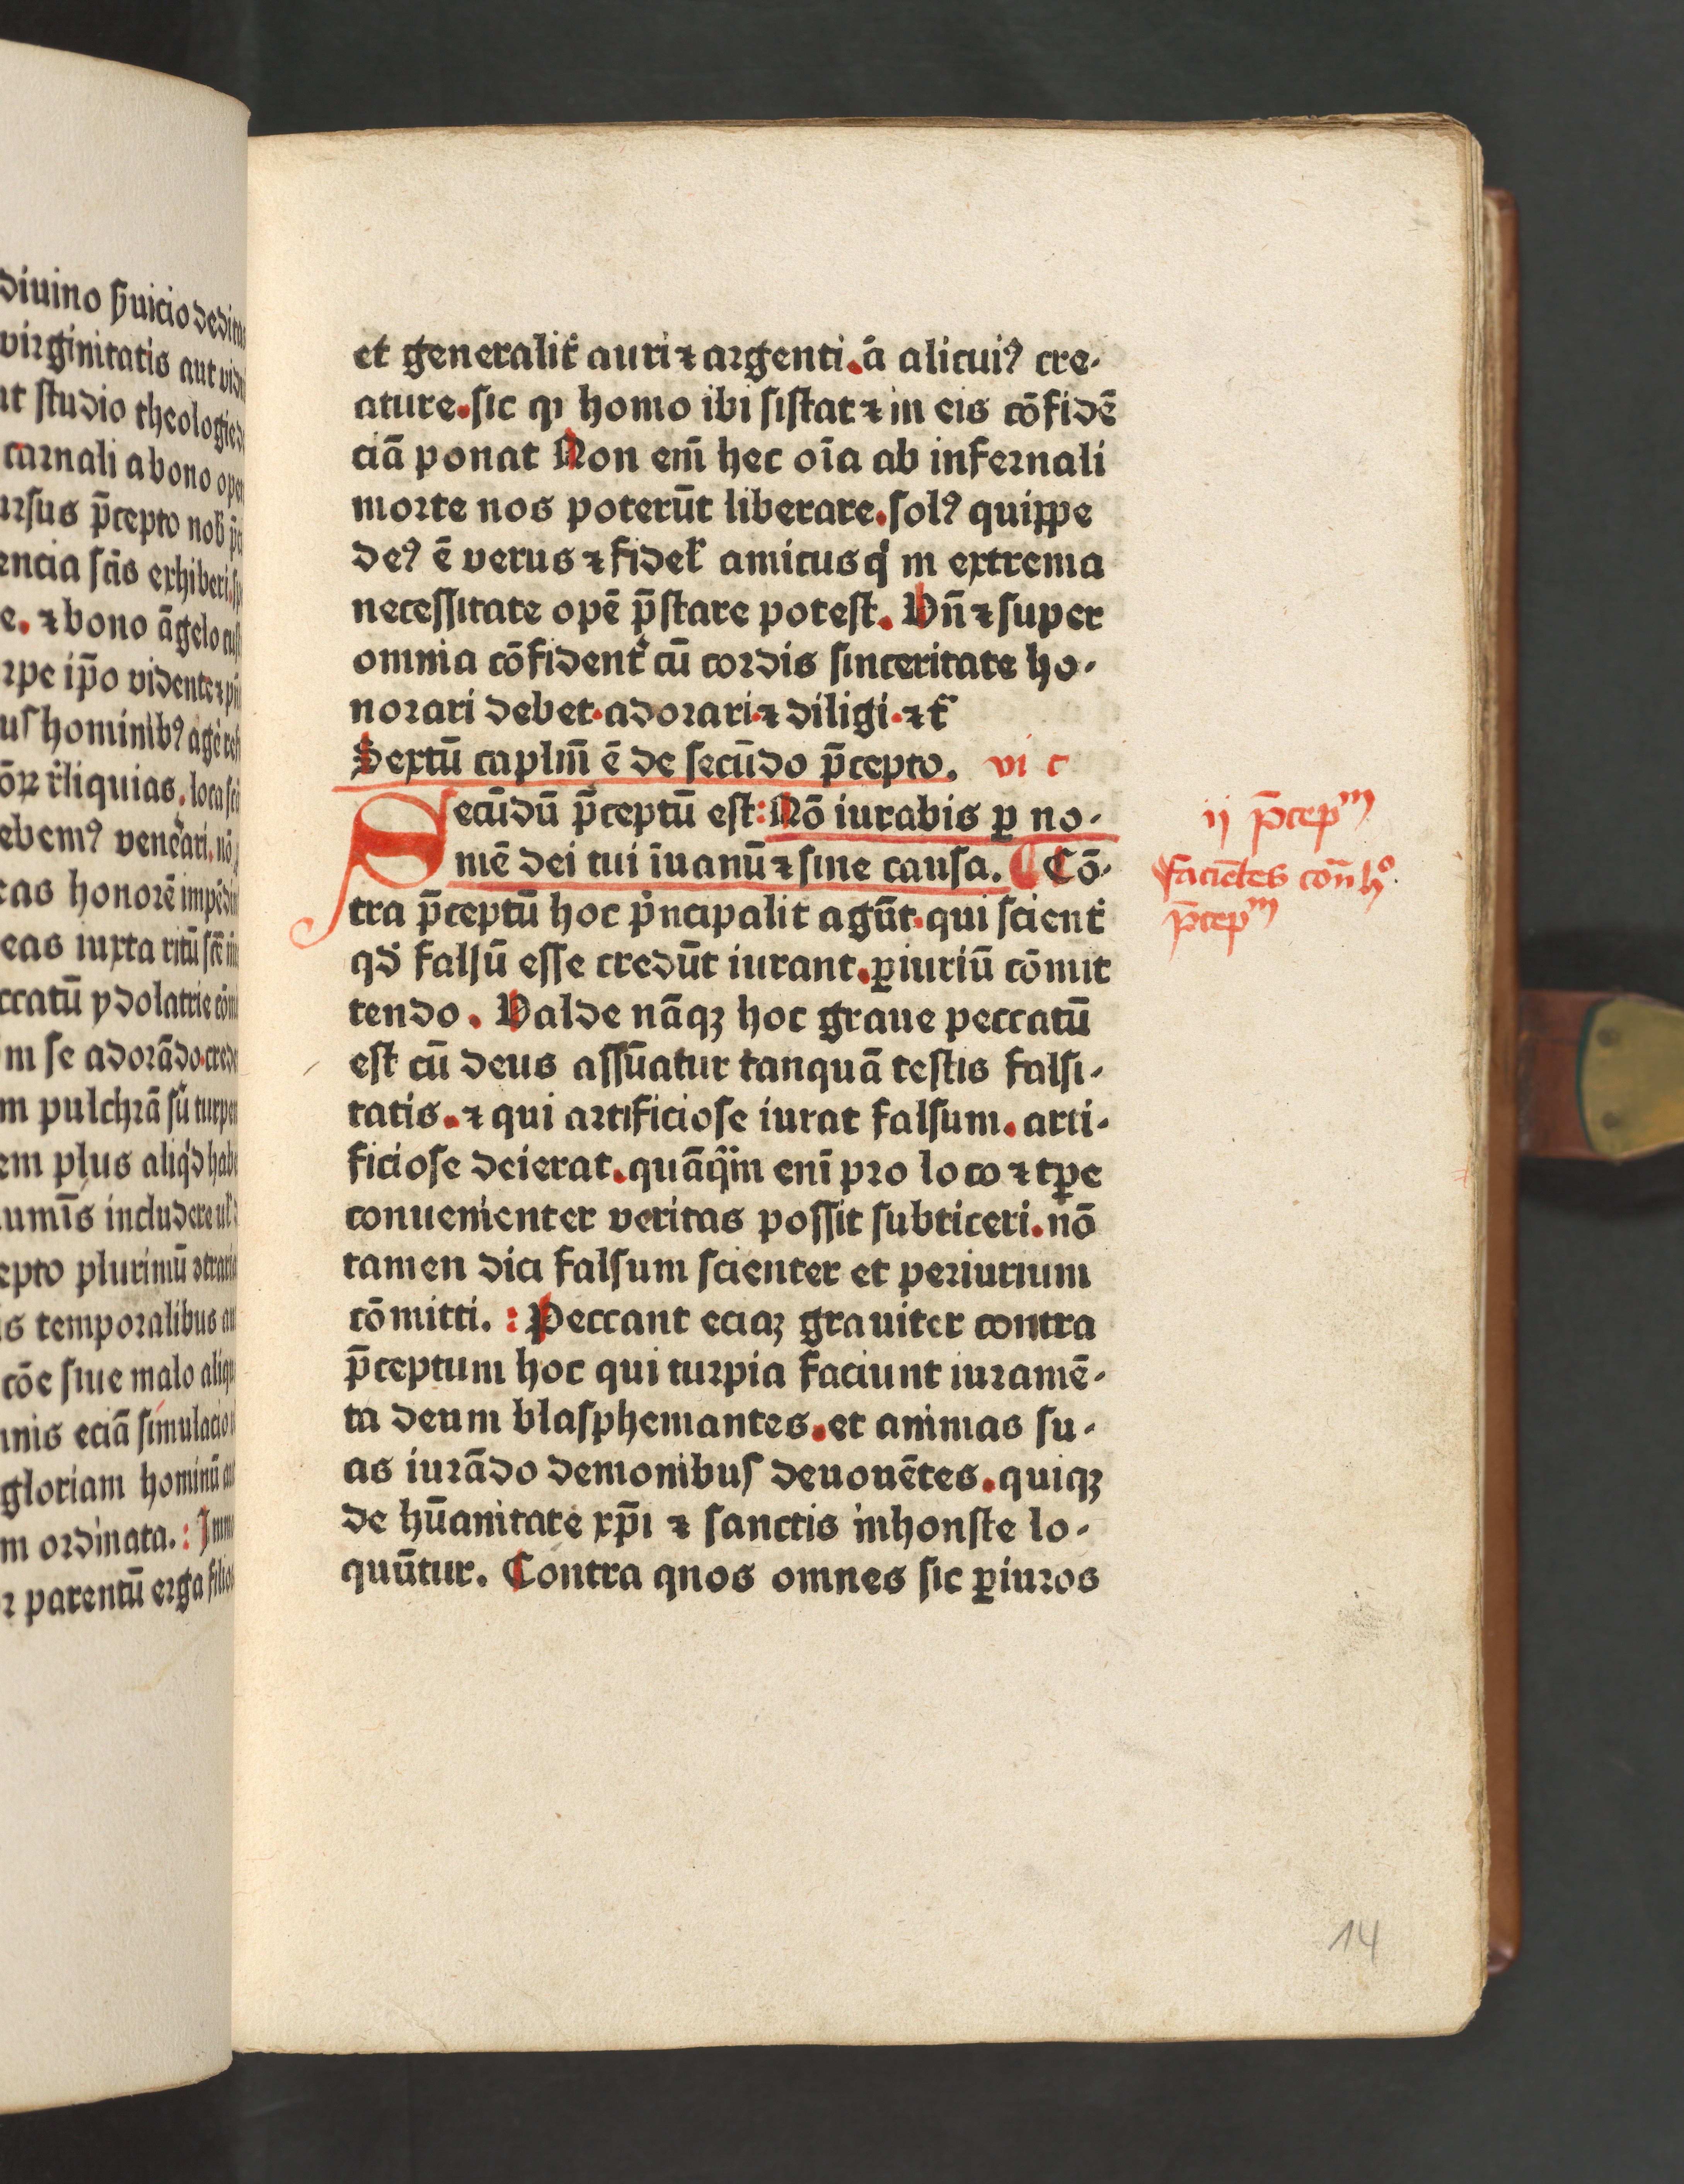 diuino ẜuicio deditas
virginitatis aut
studio theologie
carnali a bono
p̄cepto
encia sc̄is exhiberi.
e. ⁊ bono āgelo
ip̄o vidente
hominibꝰ
r̄liquias. loca
ebemꝰ
cas honorē
eas iuxta ritū
ccatū ydolatrie
m se adorādo.
m pulchrā
em plus
includere
epto plurimū
is temporalibus
siue malo
nnis eciā simulacio
gloriam hominū
m ordinata. :
r parentū erga
et generalit̉ auri ⁊ argenti. a̾ alicuiꝰ cre-
ature. sic ꝙ homo ibi sistat ⁊ in eis cōfidē
ciā ponat Non em̄ hec oīa ab infernali
morte nos poterūt liberare. solꝰ quippe
deꝰ ē verus ⁊ fidel̉ amicus q̇ in extrema
necessitate opē p̄stare potest. Vn̄ ⁊ super
omnia cōfident̉ cū cordis sinceritate ho-
norari debet. adorari. ⁊ diligi. ⁊ t̃
Sextū caplm̄ ē de secūdo p̄cepto. vi c
Secūdū p̄ceptū est: Nō iurabis ꝑ no-
mē dei tui īuanū ⁊ sine causa. ¶ Cō-
tra p̄ceptū hoc pͥncipalit agūt. qui scient̉
qd̓ falsū esse credūt iurant. ꝑiuriū cōmit
tendo. Valde nāqꝫ hoc graue peccatū
est cū deus assūatur tanquā testis falsi-
tatis. ⁊ qui artificiose iurat falsum. arti-
ficiose deierat. quāqͣm eni̅ pro loco ⁊ tp̄e
conuenienter veritas possit subticeri. nō
tamen dici falsum scienter et periurium
cōmitti. : Peccant eciaꝫ grauiter contra
p̄ceptum hoc qui turpia faciunt iuramē-
ta deum blasphemantes. et animas su-
as iurādo demonibus deuouētes. quiqꝫ
de hūanitate xp̄i ⁊ sanctis inhonste lo-
quūtur. Contra quos omnes sic ꝑiuros
ij p̄cepᵐ
faciētes con̄ hº
p̄cepᵐ
14